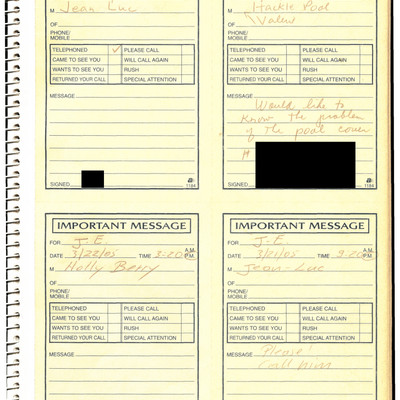 M Jean Luc
OF
PHONE/
MOBILE
TELEPHONED ✓ PLEASE CALL
CAME TO SEE YOU WILL CALL AGAIN
WANTS TO SEE YOU RUSH
RETURNED YOUR CALL SPECIAL ATTENTION
MESSAGE
SIGNED
1184
M Pool
OF
PHONE/
MOBILE
TELEPHONED PLEASE CALL
CAME TO SEE YOU WILL CALL AGAIN
WANTS TO SEE YOU RUSH
RETURNED YOUR CALL SPECIAL ATTENTION
MESSAGE
Would like to
know the problem
of the pool cover
SIGNED
1184
IMPORTANT MESSAGE
FOR J.E.
DATE 3/22/05 TIME A.M.
P.M.
M Holly Berry
OF
PHONE/
MOBILE
TELEPHONED PLEASE CALL
CAME TO SEE YOU WILL CALL AGAIN
WANTS TO SEE YOU RUSH
RETURNED YOUR CALL SPECIAL ATTENTION
MESSAGE
IMPORTANT MESSAGE
FOR J.E.
DATE 3/21/05 TIME A.M.
P.M.
M Jean-Luc
OF
PHONE/
MOBILE
TELEPHONED PLEASE CALL
CAME TO SEE YOU WILL CALL AGAIN
WANTS TO SEE YOU RUSH
RETURNED YOUR CALL SPECIAL ATTENTION
MESSAGE Please!
Call him